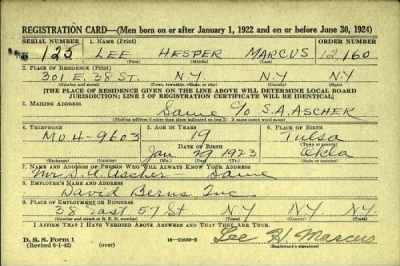 REGISTRATION CARD—(Men born on or after January 1, 1922 and on or before June 30, 1924)
SERIAL NUMBER 1. NAME (Print) ORDER NUMBER
N 125 LEE HESPER MARCUS 12,160
(First) (Middle) (Last)
2. PLACE OF RESIDENCE (Print)
301 E. 38 ST. N.Y. N.Y.
(Number and street) (Town, township, village, or city) (County) (State)
[THE PLACE OF RESIDENCE GIVEN ON THE LINE ABOVE WILL DETERMINE LOCAL BOARD
JURISDICTION; LINE 2 OF REGISTRATION CERTIFICATE WILL BE IDENTICAL]
3. MAILING ADDRESS
Same c/o S.A. ASCHER
[Mailing address if other than place indicated on line 2. If same insert word same]
4. TELEPHONE 5. AGE IN YEARS 6. PLACE OF BIRTH
MU 4-9603 19 Tulsa
DATE OF BIRTH (Town or county)
Jan 29 1923 Okla
(Exchange) (Number) (Mo.) (Day) (Yr.) (State or country)
7. NAME AND ADDRESS OF PERSON WHO WILL ALWAYS KNOW YOUR ADDRESS
Mr S. A. Ascher — Same
8. EMPLOYER'S NAME AND ADDRESS
David Berns Inc.
9. PLACE OF EMPLOYMENT OR BUSINESS
38 East 57 St N.Y. N.Y. N.Y.
(Number and street or R. F. D. number) (Town) (County) (State)
I AFFIRM THAT I HAVE VERIFIED ABOVE ANSWERS AND THAT THEY ARE TRUE.
D. S. S. Form 1
(Revised 6-1-42) Lee H. Marcus
(Registrant's signature)